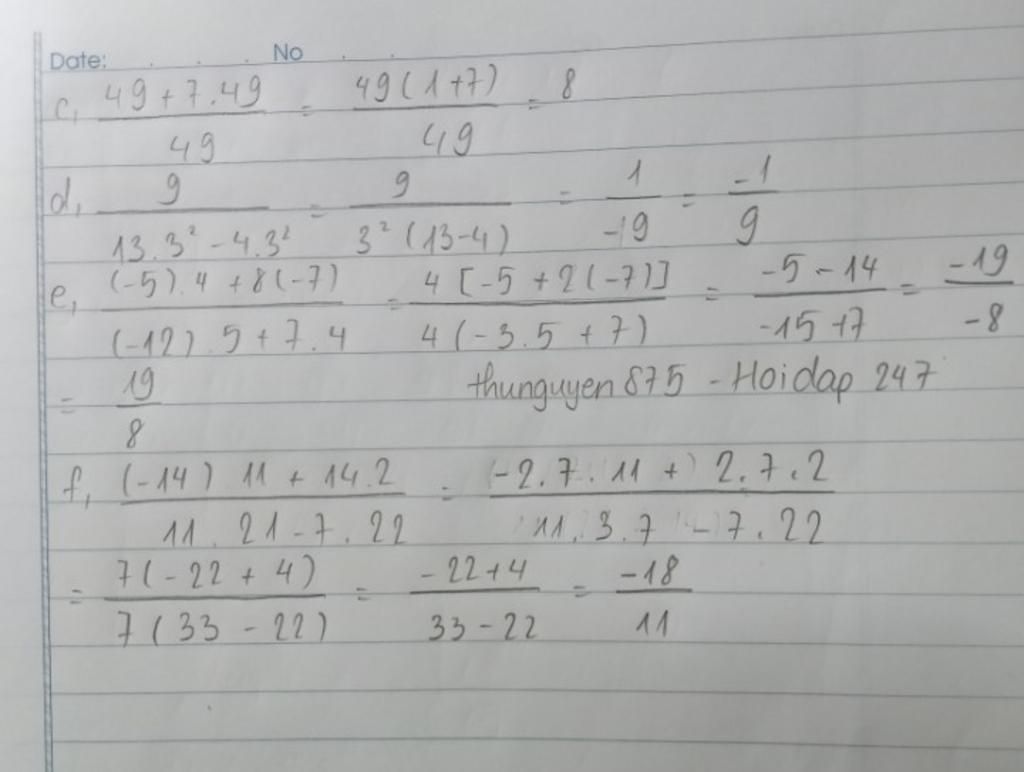 Date: . . . No . .
c, (49 + 7.49)/49 = 49(1+7)/49 = 8
d, 9/(13.3² - 4.3²) = 9/(3²(13-4)) = 1/-19 = -1/9
e, ((-5).4 + 8(-7))/((-12).5 + 7.4) = 4[-5 + 2(-7)]/4(-3.5 + 7) = (-5 - 14)/(-15+7) = -19/-8
= 19/8 thunguyen 875 - Hoidap 247
f, ((-14) 11 + 14.2)/(11.21 - 7.22) = (-2.7.11 +) 2.7.2/(11.3.7 - 7.22)
= 7(-22 + 4)/7(33 - 22) = (-22+4)/(33-22) = -18/11